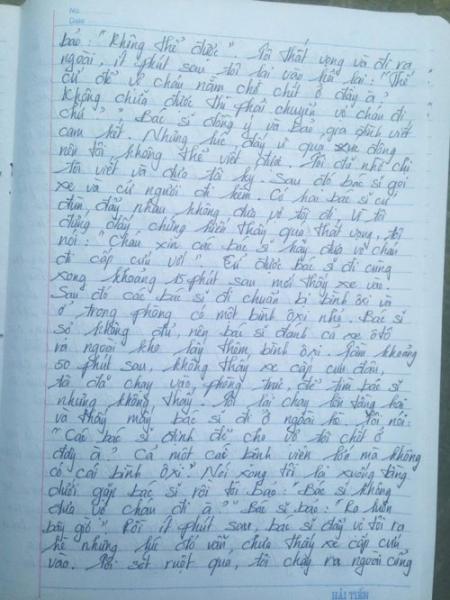 No.
Date
bảo: "Không thể được". Tôi thất vọng và đi ra
ngoài, ít phút sau tôi lại vào hỏi lại: "Thế
cứ để vợ cháu nằm chờ chết ở đây à?
Không chữa được thì phải chuyển vợ cháu đi
chứ", Bác sĩ đồng ý và bảo gia đình viết
cam kết. Nhưng lúc đấy vì quá xúc động
nên tôi không thể viết được. Tôi đã nhờ chị
tôi viết và đưa tôi ký. Sau đó bác sĩ gọi
xe và cử người đi kèm. Có hai bác sĩ cứ
đùn đẩy nhau không đưa vợ tôi đi. Vì tôi
đứng đấy chứng kiến thấy quá thất vọng, tôi
nói: "Cháu xin các bác sĩ hãy đưa vợ cháu
đi cấp cứu với". Cử được bác sĩ đi cùng
xong khoảng 15 phút sau mới thấy xe vào.
Sau đó các bác sĩ đi chuẩn bị bình ôxi và
ở trong phòng có một bình ôxi nhỏ. Bác sĩ
sợ không đủ, nên bác sĩ đánh cả xe ôtô
ra ngoài kho lấy thêm bình ôxi. Tầm khoảng
50 phút sau, không thấy xe cấp cứu đâu,
tôi đã chạy vào phòng trực để tìm bác sĩ
nhưng không thấy. Tôi lại chạy lên tầng hai
và thấy mấy bác sĩ đi ở ngoài hè. Tôi nói:
"Các bác sĩ định để cho vợ tôi chết ở
đây à? Cả một cái bệnh viện lớn mà không
có cái bình ôxi." Nói xong tôi lại xuống tầng
dưới gặp bác sĩ rồi tôi bảo: "Bác sĩ không
đưa vợ cháu đi à?" Bác sĩ bảo: "Ra luôn
bây giờ". Rồi ít phút sau, bác sĩ đẩy vợ tôi ra
hè nhưng lúc đó vẫn chưa thấy xe cấp cứu
vào. Tôi sốt ruột quá, tôi chạy ra ngoài cổng
HẢI TIẾN